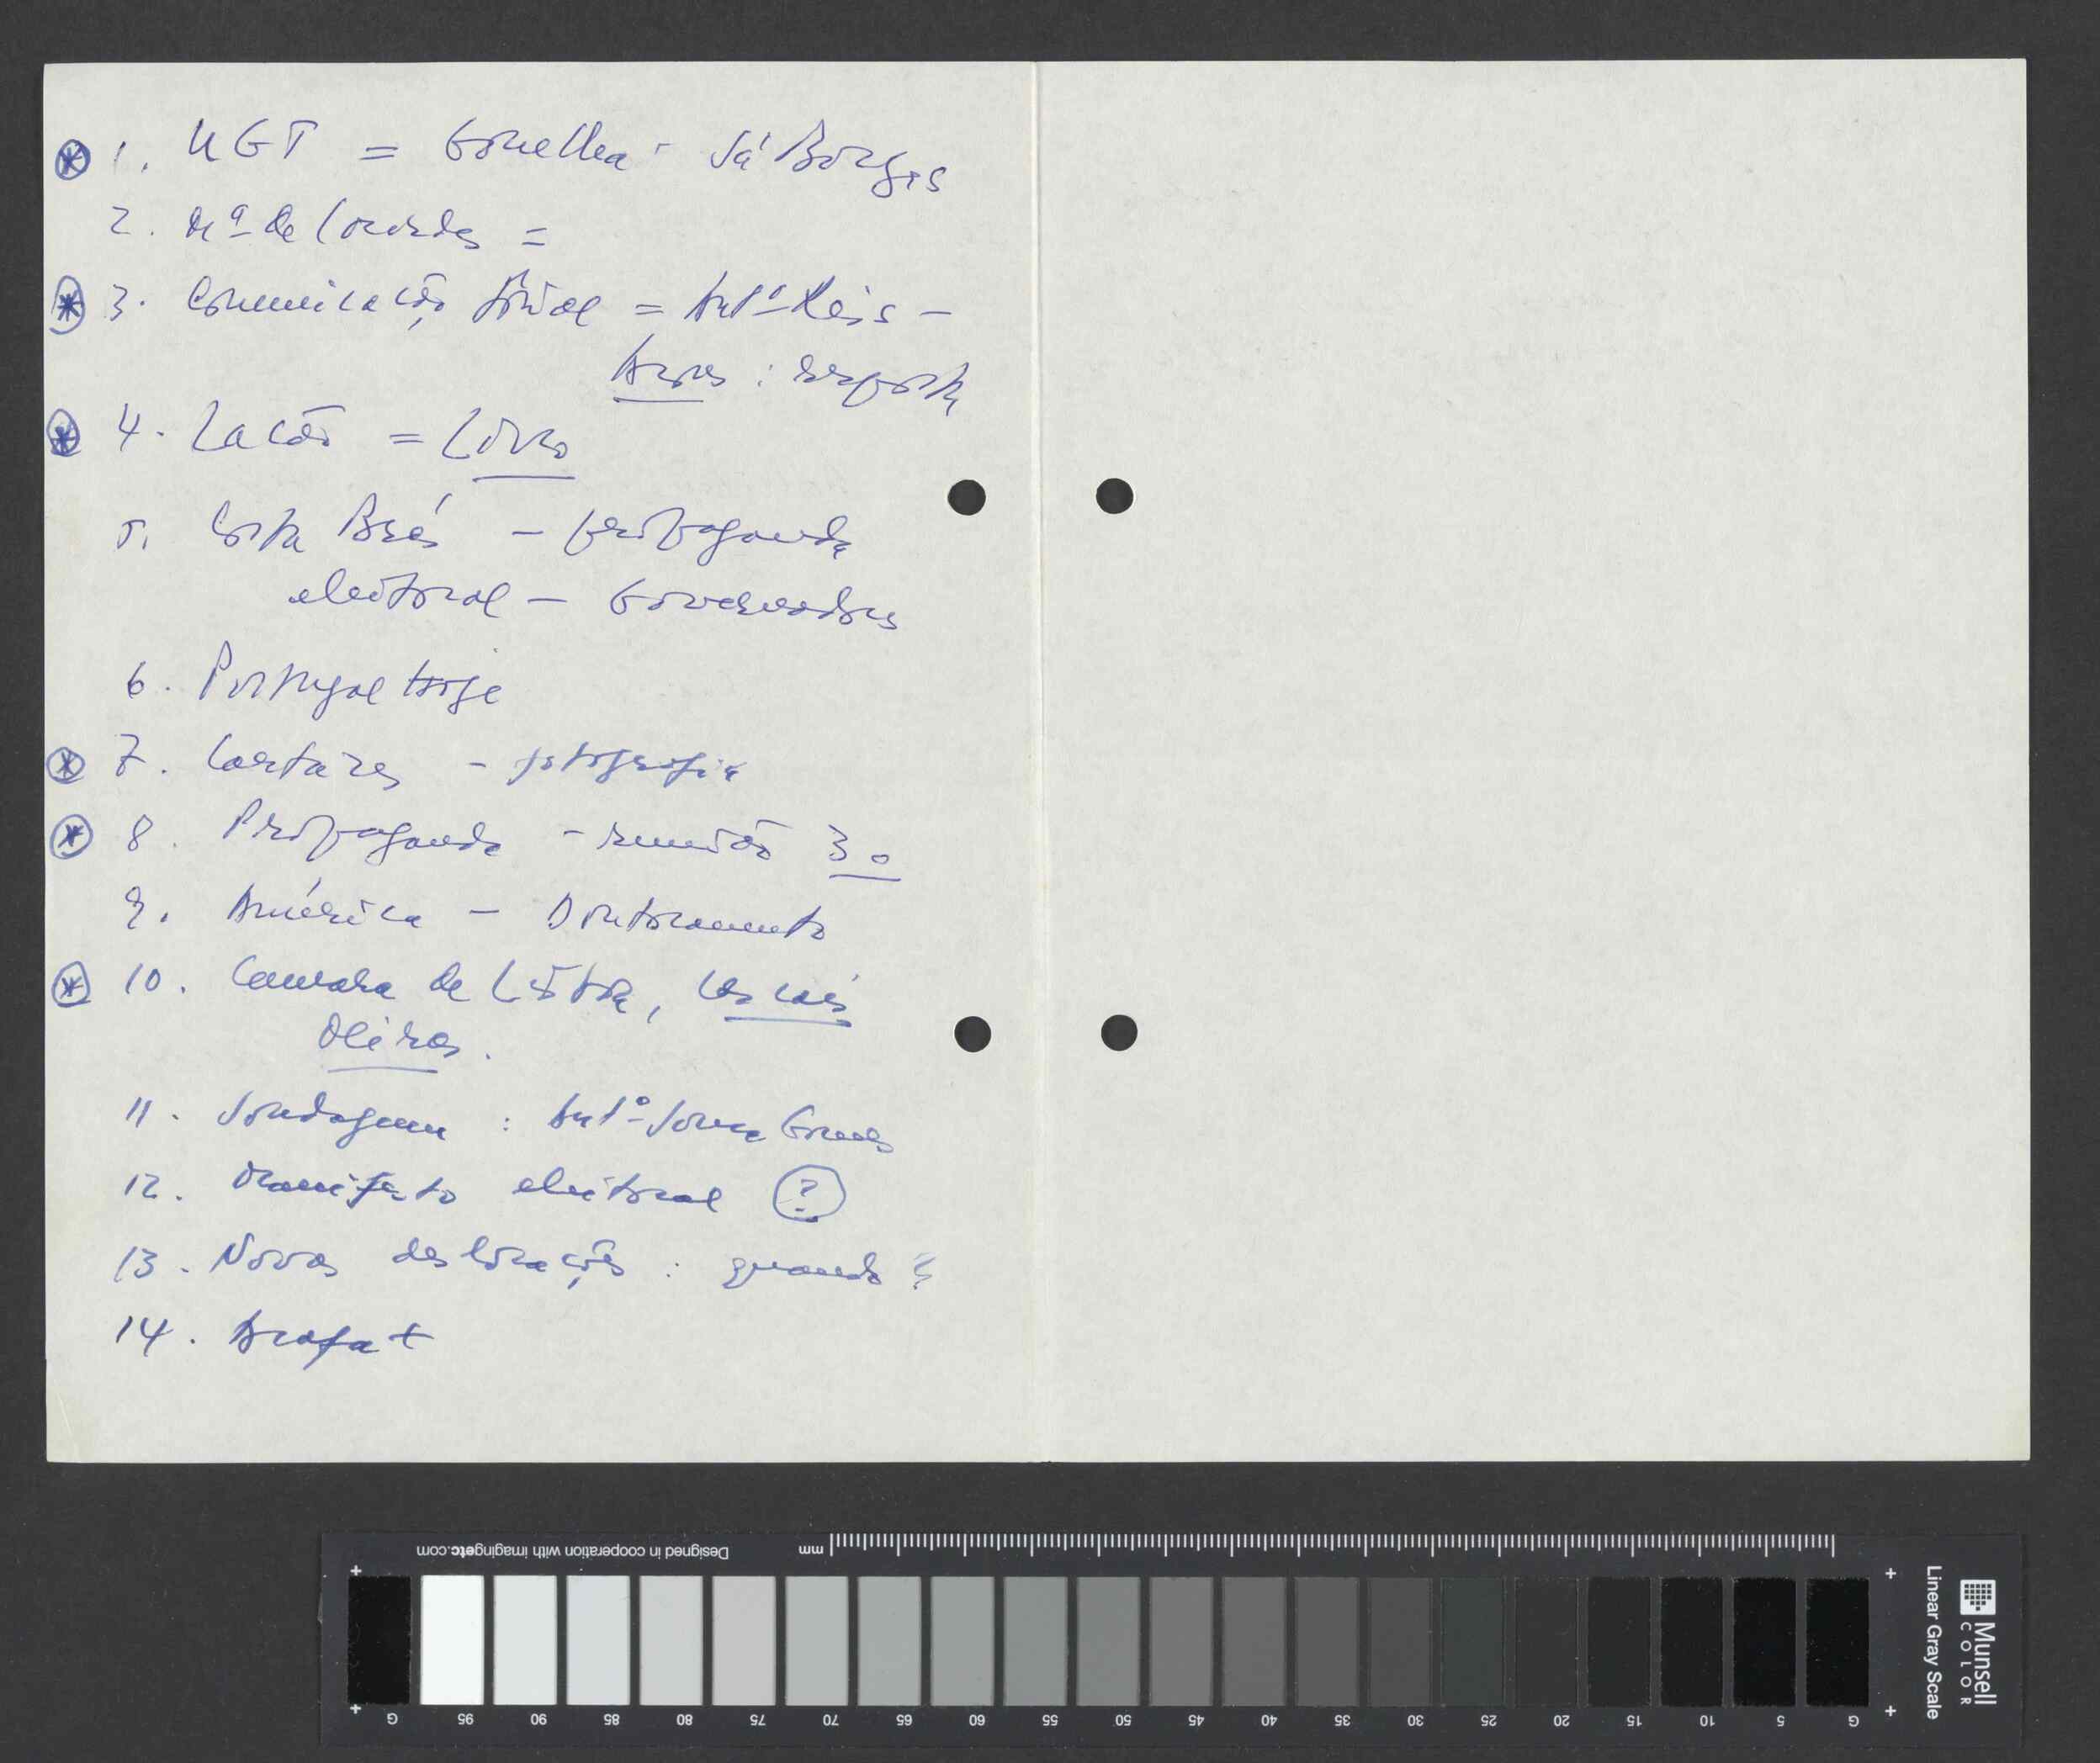 ⊛ 1. UGT = Gonelha - Sá Borges
2. Mª de Lourdes =
⊛ 3. Comunicação Social = Antº Reis -
Açores : resposta
⊛ 4. Lacão = Livro
5. Costa Brás - propaganda
eleitoral - Governadores
6. Portugal Hoje
⊛ 7. Cartazes - fotografia
⊛ 8. Propaganda - reunião 30
9. América - Doutoramento
⊛ 10. Camara de Lisboa, Cascais
Oeiras.
11. Sondagem : Antº Sousa Gomes
12. Manifesto eleitoral ?
13. Novas deslocações : quando ?
14. Arafat
Designed in cooperation with imagingetc.com
mm
Munsell
COLOR
Linear Gray Scale
G 95 90 85 80 75 70 65 60 55 50 45 40 35 30 25 20 15 10 5 G